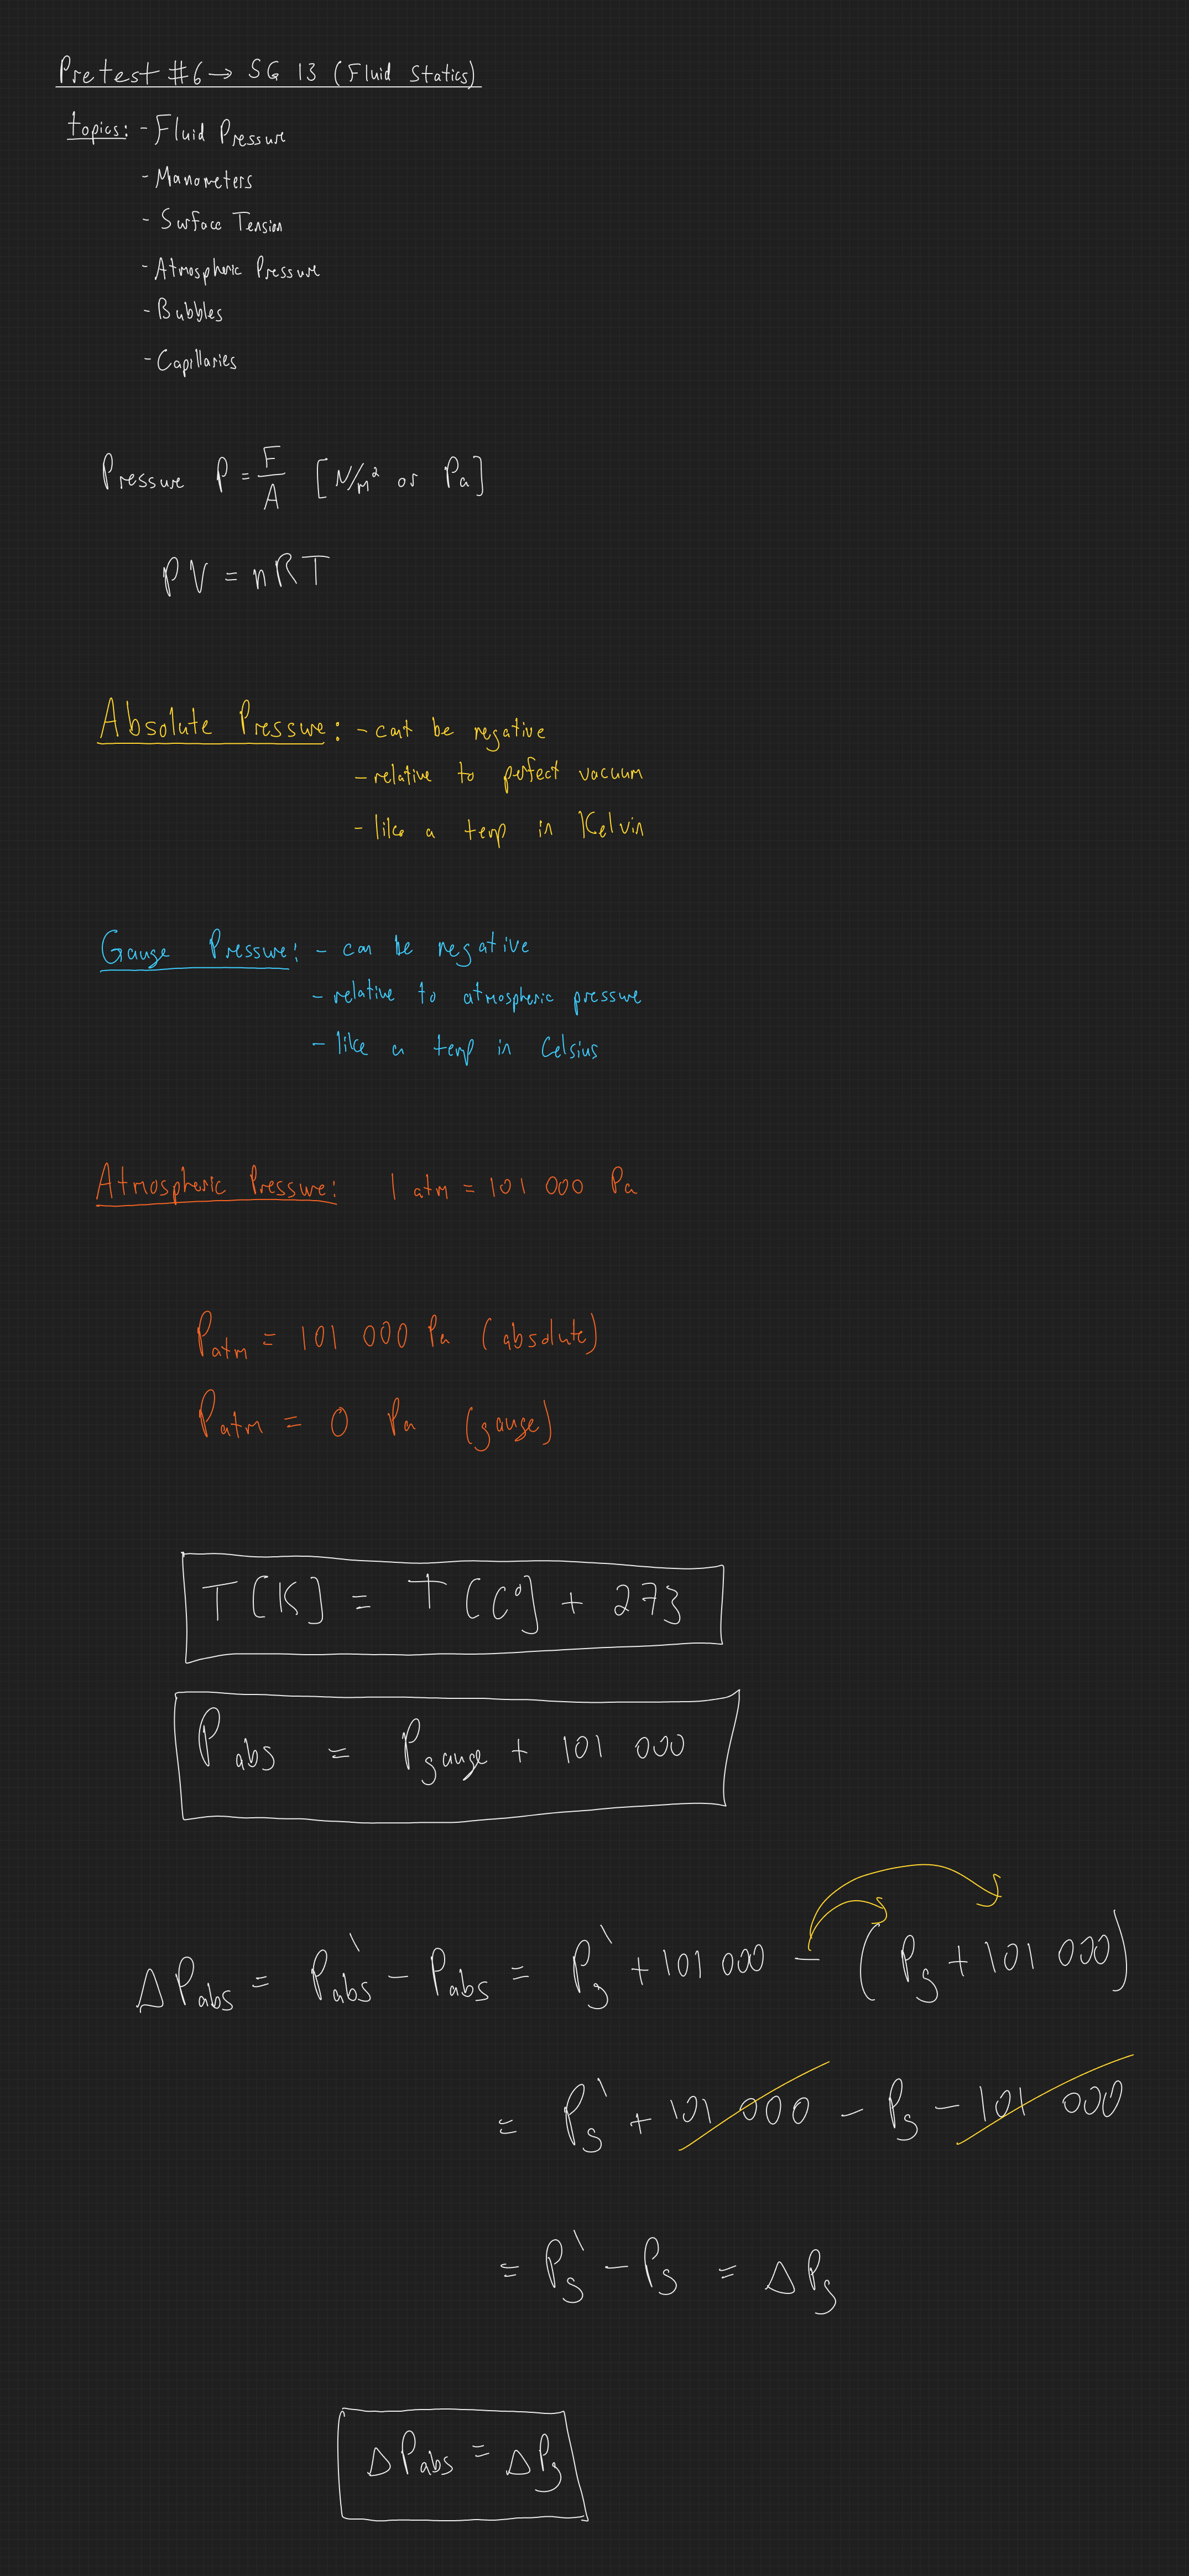 Pretest #6 → SG 13 (Fluid Statics)
topics: - Fluid Pressure
- Manometers
- Surface Tension
- Atmospheric Pressure
- Bubbles
- Capillaries
Pressure P = F/A [N/m² or Pa]
PV = nRT
Absolute Pressure: - can't be negative
- relative to perfect vacuum
- like a temp in Kelvin
Gauge Pressure: - can be negative
- relative to atmospheric pressure
- like a temp in Celsius
Atmospheric Pressure: 1 atm = 101 000 Pa
Patm = 101 000 Pa (absolute)
Patm = 0 Pa (gauge)
T [K] = T [C°] + 273
Pabs = Pgauge + 101 000
ΔPabs = P'abs - Pabs = Pg' + 101 000 - (Pg + 101 000)
= Pg' + 101 000 - Pg - 101 000
= Pg' - Pg = ΔPg
ΔPabs = ΔPg